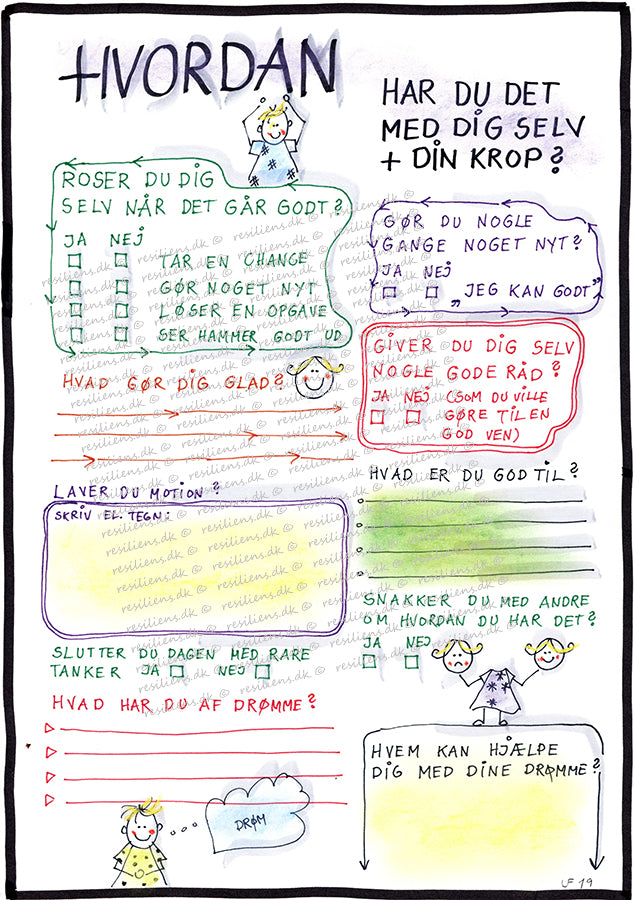 HVORDAN
HAR DU DET
MED DIG SELV
+ DIN KROP?
ROSER DU DIG
SELV NÅR DET GÅR GODT?
JA NEJ
TAR EN CHANGE
GØR NOGET NYT
LØSER EN OPGAVE
SER HAMMER GODT UD
GØR DU NOGLE
GANGE NOGET NYT?
JA NEJ
„JEG KAN GODT"
GIVER DU DIG SELV
NOGLE GODE RÅD?
JA NEJ (SOM DU VILLE
GØRE TIL EN
GOD VEN)
HVAD GØR DIG GLAD?
HVAD ER DU GOD TIL?
LAVER DU MOTION?
SKRIV EL. TEGN:
SNAKKER DU MED ANDRE
OM HVORDAN DU HAR DET?
JA NEJ
SLUTTER DU DAGEN MED RARE
TANKER JA NEJ
HVAD HAR DU AF DRØMME?
HVEM KAN HJÆLPE
DIG MED DINE DRØMME?
DRØM
UF 19
resiliens.dk ©